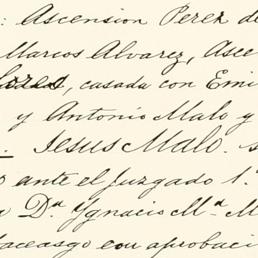 : Ascension Perez de
Marcos Alvarez, Asce
, casada con Emi
y Antonio Malo y
. Jesus Malo. s
o ante el Juzgado 1.º
Dª Ignacio Mª M
con aprobaci